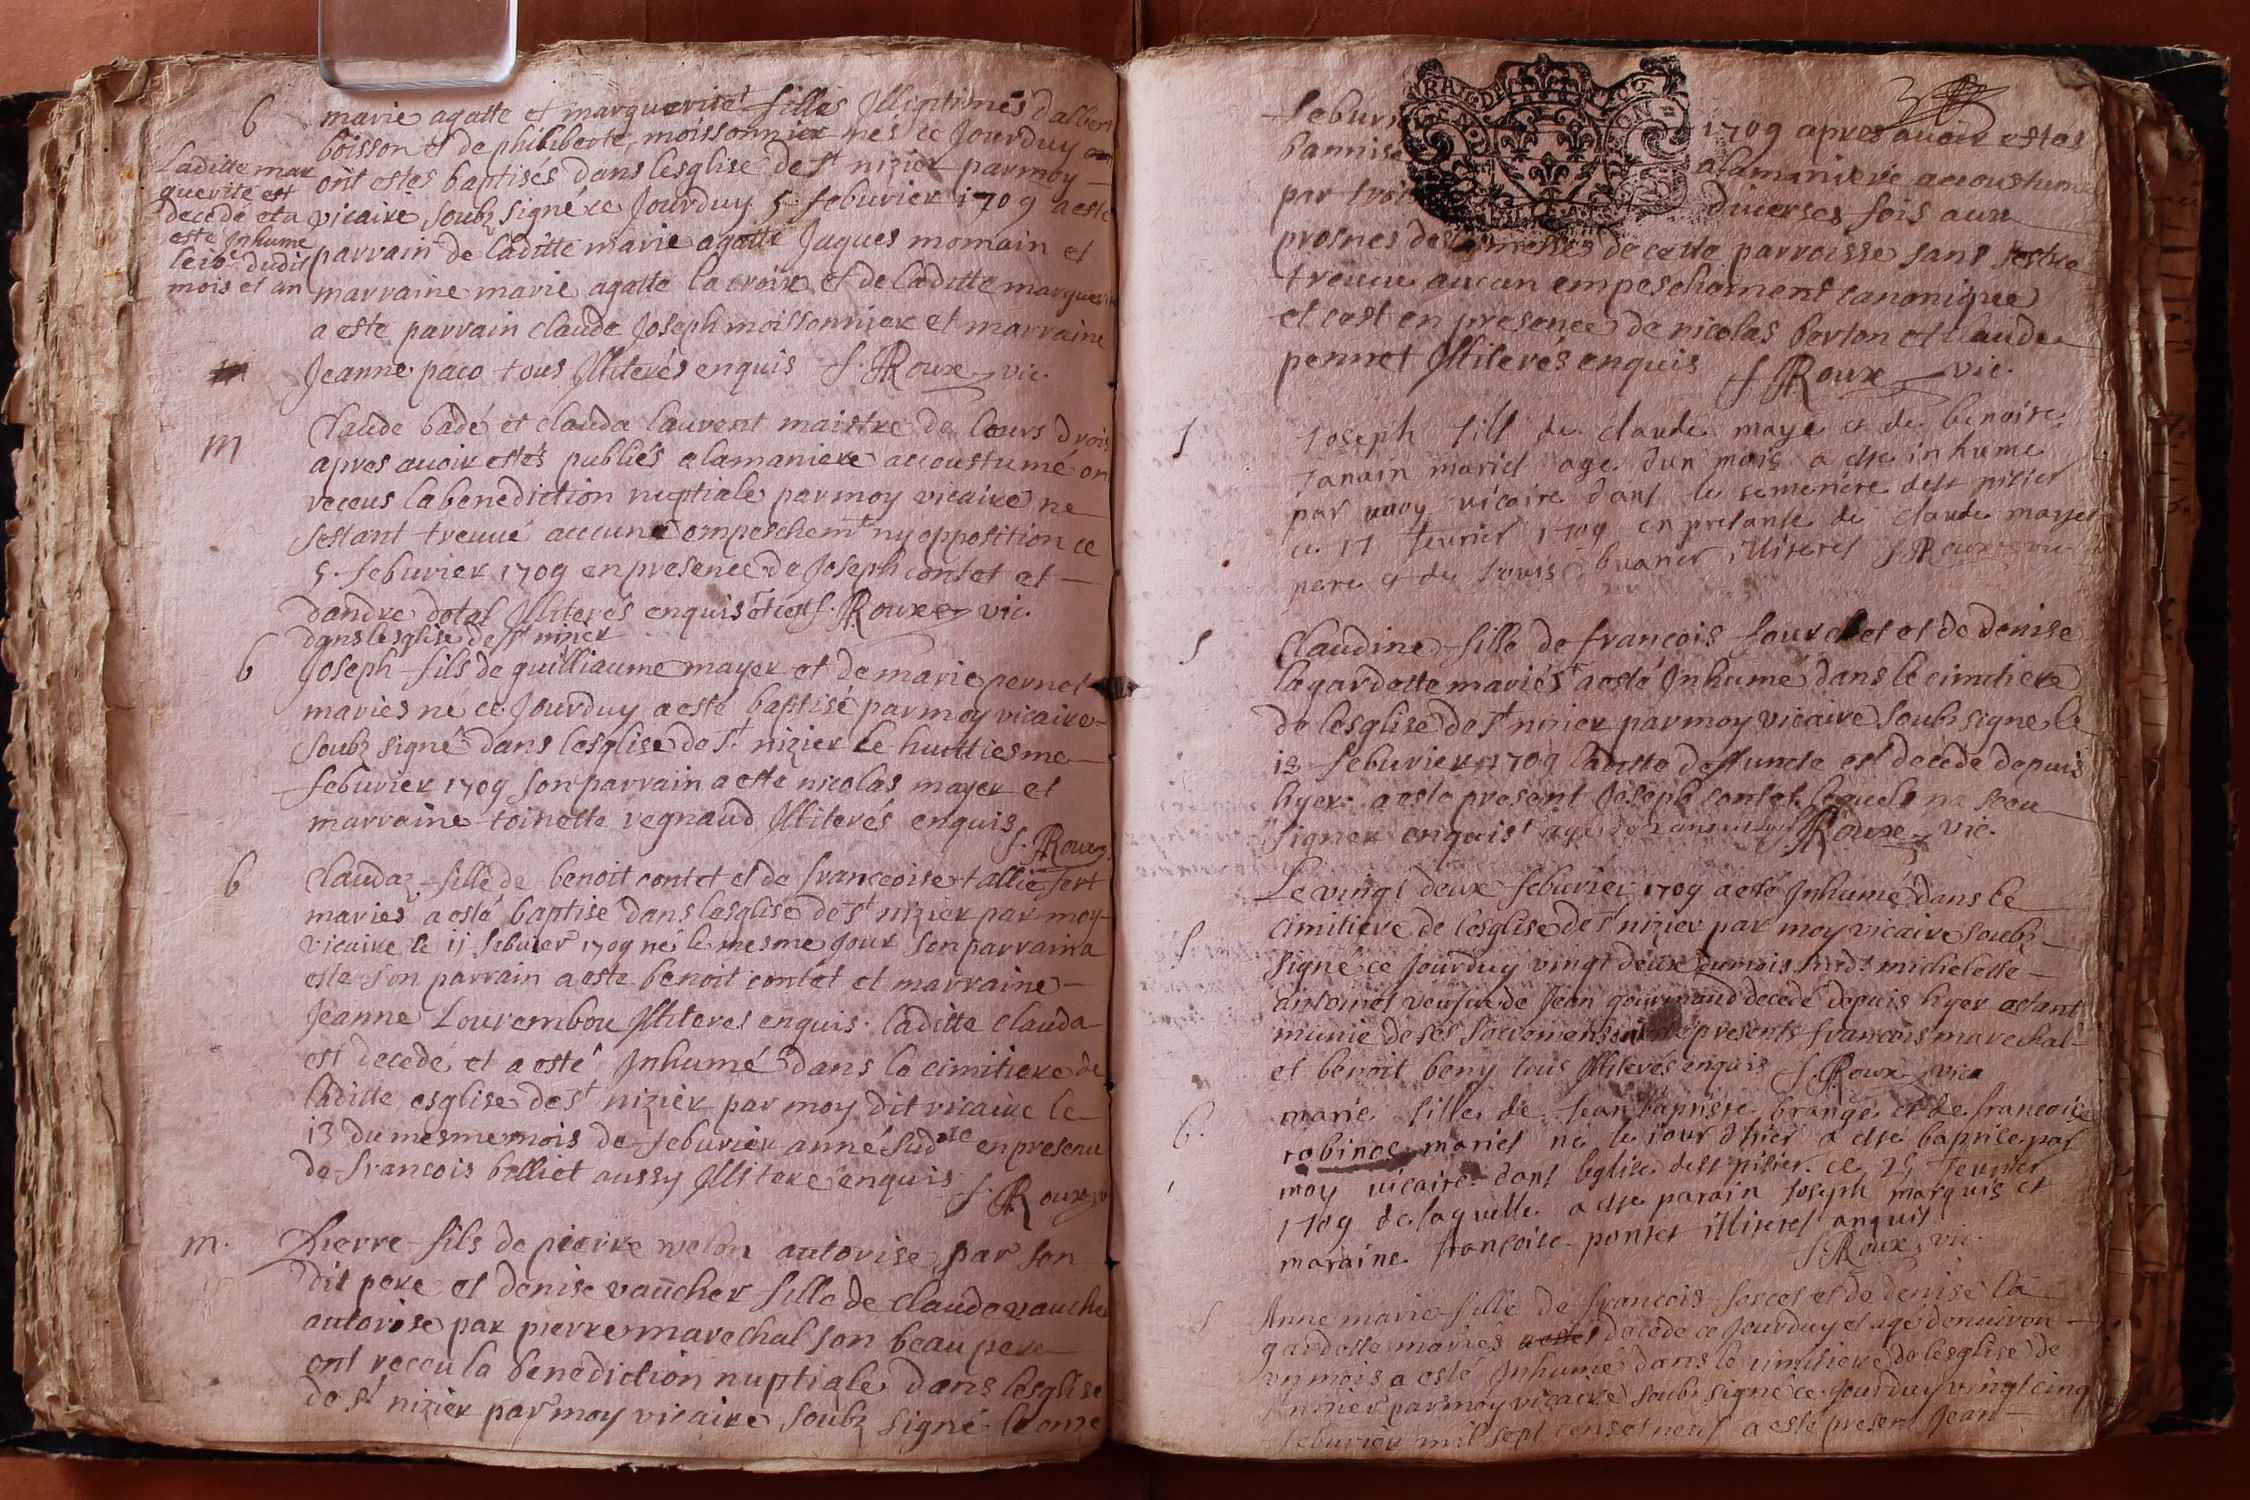 b
marie agatte et marguerite filles Jlligitimes dalbert
boisson et de philiberte moissonnier nés ce Jourduy
ont estes baptisés dans lesglise de st nizier parmoy
vicaire soubz signé ce Jourduy 5 feburier 1709 a este
parrain de laditte marie agatte Jaques momain et
marraine marie agatte lacroix et de laditte marguerite
a este parrain claude Joseph moissonnier et marraine
Jeanne paco tous Jlliterés enquis f. Roux vic.
Laditte mar
guerite est
decede et a
este Jnhume
le 10e dudit
mois et an
m
Claude badé et clauda laurent maistre de leurs drois
apres auoir estés publiés alamaniere accoustumé on
receus la benediction nuptiale par moy vicaire ne
sestant treuué accune empeschemt ny opposition ce
5. feburier 1709 en presence de Joseph contet et
dandre dotal Jlliterés enquis et cest f. Roux vic.
dans lesglise de st nizier
b
Joseph fils de guilliaume mayer et de marie pernet
maries né ce Jourduy a esté baptisé par moy vicaire
soubz signé dans lesglise de st nizier le huittiesme
feburier 1709 son parrain a este nicolas mayer et
marraine toinette regnaud Jlliterés enquis
f. Roux
b
Claudaz fille de benoit contet et de francoise tallie fert
maries a esté baptise dans lesglise de st nizier par moy
vicaire le 11 feburier 1709 né le mesme jour son parrain a
este son parrain a este benoit contet et marraine
Jeanne Lourembou Jlliteres enquis. laditte clauda
est decedé et a esté Jnhumé dans le cimitiere de
laditte esglise de st nizier par moy dit vicaire le
13 du mesme mois de feburier anné sudte en presence
de francois belliet aussy Jllitere enquis
f. Roux v
m.
Pierre fils de pierre melon autorise par son
dit pere et denise vaucher fille de claude vaucher
autorise par pierre marechal son beau pere
ont receu la benediction nuptiale dans lesglise
de st nizier par moy vicaire soubz signé le onze
feburier 1709 apres auoir estes
bannise alamaniere accoustume
par trois diuerses fois aux
prosnes des messes de cette parroisse sans sestre
treuue aucun empeschement canonique
et cest en presence de nicolas berton et claude
pennet Jlliterés enquis f Roux vic.
S
Joseph fils de claude maye et de benoite
Janain mariés age dun mois a este inhume
par moy vicaire dans le semetiere de st nisier
ce 17 feurier 1709 en presanse de claude mayet
pere et de louis buaner illiteres f Roux vic
S
Claudine fille de francois fourcet et de denise
lagardette mariés a esté Jnhumé dans le cimitiere
de lesglise de st nizier par moy vicaire soubz signe le
18 feburier 1709 laditte deffuncte est decede depuis
hyer. a este present Joseph contet lequel na sceu
signer enquis f Roux vic.
S
Le vingt deux feburier 1709 a esté Jnhumé dans le
cimitiere de lesglise de st nizier par moy vicaire soubz
signé ce Jourduy vingt deux du mois sudt michelette
antoinet veufue de Jean gourmand decedé depuis hyer estant
munie de ses sacremens presents francois marechal
et benoit beny tous Jlliterés enquis f. Roux vic
b.
marie fille de Jean baptiste brange et de francoise
robinet mariés né le jour dhier a esté baptisé par
moy vicaire dans leglise de st nisier ce 25 feurier
1709 de laquelle a este parain Joseph marquis et
maraine francoise ponset illiteres anquis
f. Roux vic.
S
Anne marie fille de francois forcet et de denise la
gardette mariés decede ce Jourduy et agé denuiron
vn mois a esté Jnhumé dans le cimitiere de lesglise de
st nizier par moy vicaire soubz signé ce Jourduy vingt cinq
feburier mil sept cens et neuf a este present Jean